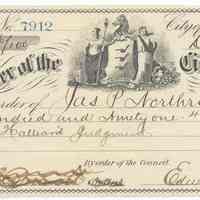 No. 7912 City o
/100
er of the Ci
order of Jas P. Northro
undred and Ninety one 4
Halliard Judgment
By order of the Council.
Edw